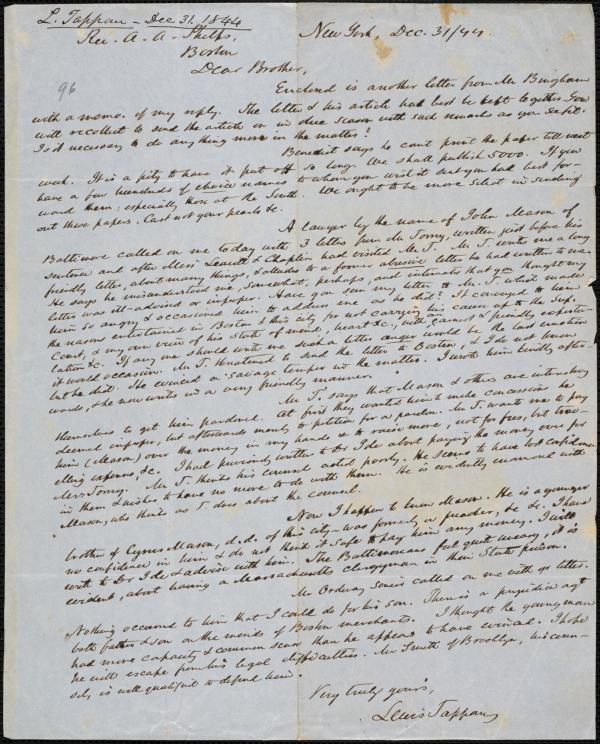 L. Tappan - Dec 31. 1844
New York, Dec. 31/44.
Rev. A. A. Phelps,
Boston
Dear Brother,
96
Enclosed is another letter from Mr Bingham
with a memo. of my reply. The letter & his article had best be kept together. You
will recollect to send the article on in due season with such remarks as you see fit.
Is it necessary to do any thing more in the matter?
Benedict says he cant print the paper till next
week. It is a pity to have it put off so long. We shall publish 5000. If you
have a few hundreds of choice names to whom you wish it sent you had best for-
ward them; especially those at the South. We ought to be more select in sending
out these papers. Cast not your pearls &c.
A lawyer by the name of John Mason of
Baltimore called on me to day with 3 letters from Mr Torrey, written just before his
sentence and after Messrs Leavitt & Chaplin had visited Mr. T. Mr. T. wrote me a long
friendly letter, about many things, & alludes to a former abusive letter he had written to me.
He says he misunderstood me, somewhat, perhaps, and intimates that you thought my
letter was ill-advised or improper. Have you seen my letter to Mr. T. which made
him so angry & occasioned him to address me as he did? It conveyed to him
the reasons entertained in Boston & this city for not carrying his case up to the Sup.
Court, & my own view of his state of mind, heart &c, with earnest & friendly expostu-
lation &c. If any one should write me such a letter anger would be the last emotion
it would occasion. Mr. T. threatened to send the letter to Boston, & I do not know
but he did. He evinced a savage temper in the matter. I wrote him kindly after-
wards, & he now writes in a very friendly manner.
Mr. T. says that Mason & others are interesting
themselves to get him pardoned. At first they wanted him to make concession he
deemed improper, but afterwards merely to petition for a pardon. Mr. T. wants me to pay
him (Mason) over the money in my hands & to raise more, not for fees, but trav-
elling expenses, &c. I had previously written to Dr Ide about paying the money over for
Mrs Torrey. Mr. T. thinks his counsel acted poorly. He seems to have lost confidence
in them & wishes to have no more to do with them. He is cordially enamored with
Mason, who thinks as T. does about the counsel.
Now I happen to know Mason. He is a younger
brother of Cyrus Mason, d.d. of this city - was formerly a preacher, &c &c. I have
no confidence in him & do not think it safe to pay him any money. I will
write to Dr Ide & advise with him. The Baltimoreans feel quite uneasy, it is
evident, about having a Massachusetts clergyman in their State prison.
Mr Ordway Senior called on me with yr letter.
Nothing occurred to him that I could do for his son. There is a prejudice agt
both father & son on the minds of Boston merchants. I thought the young man
had more capacity & common sense than he appears to have evinced. I hope
he will escape from his legal difficulties. Mr Smith of Brooklyn, his coun-
sel, is well qualified to defend him.
Very truly yours,
Lewis Tappan